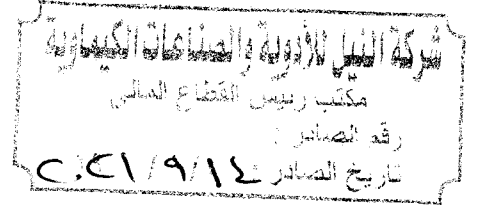 شركة النيل للأدوية والصناعات الكيماوية
مكتب رئيس القطاع المالى
رقم الصادر :
تاريخ الصادر ١٤ / ٩ / ٢٠٢١